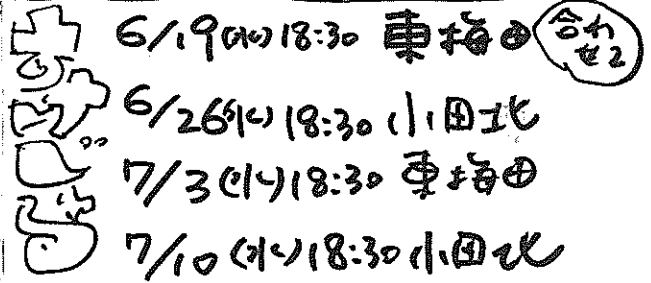 6/19(水)18:30 東梅田 合わせ2
6/26(水)18:30 小田北
7/3(水)18:30 東梅田
7/10(水)18:30 小田北